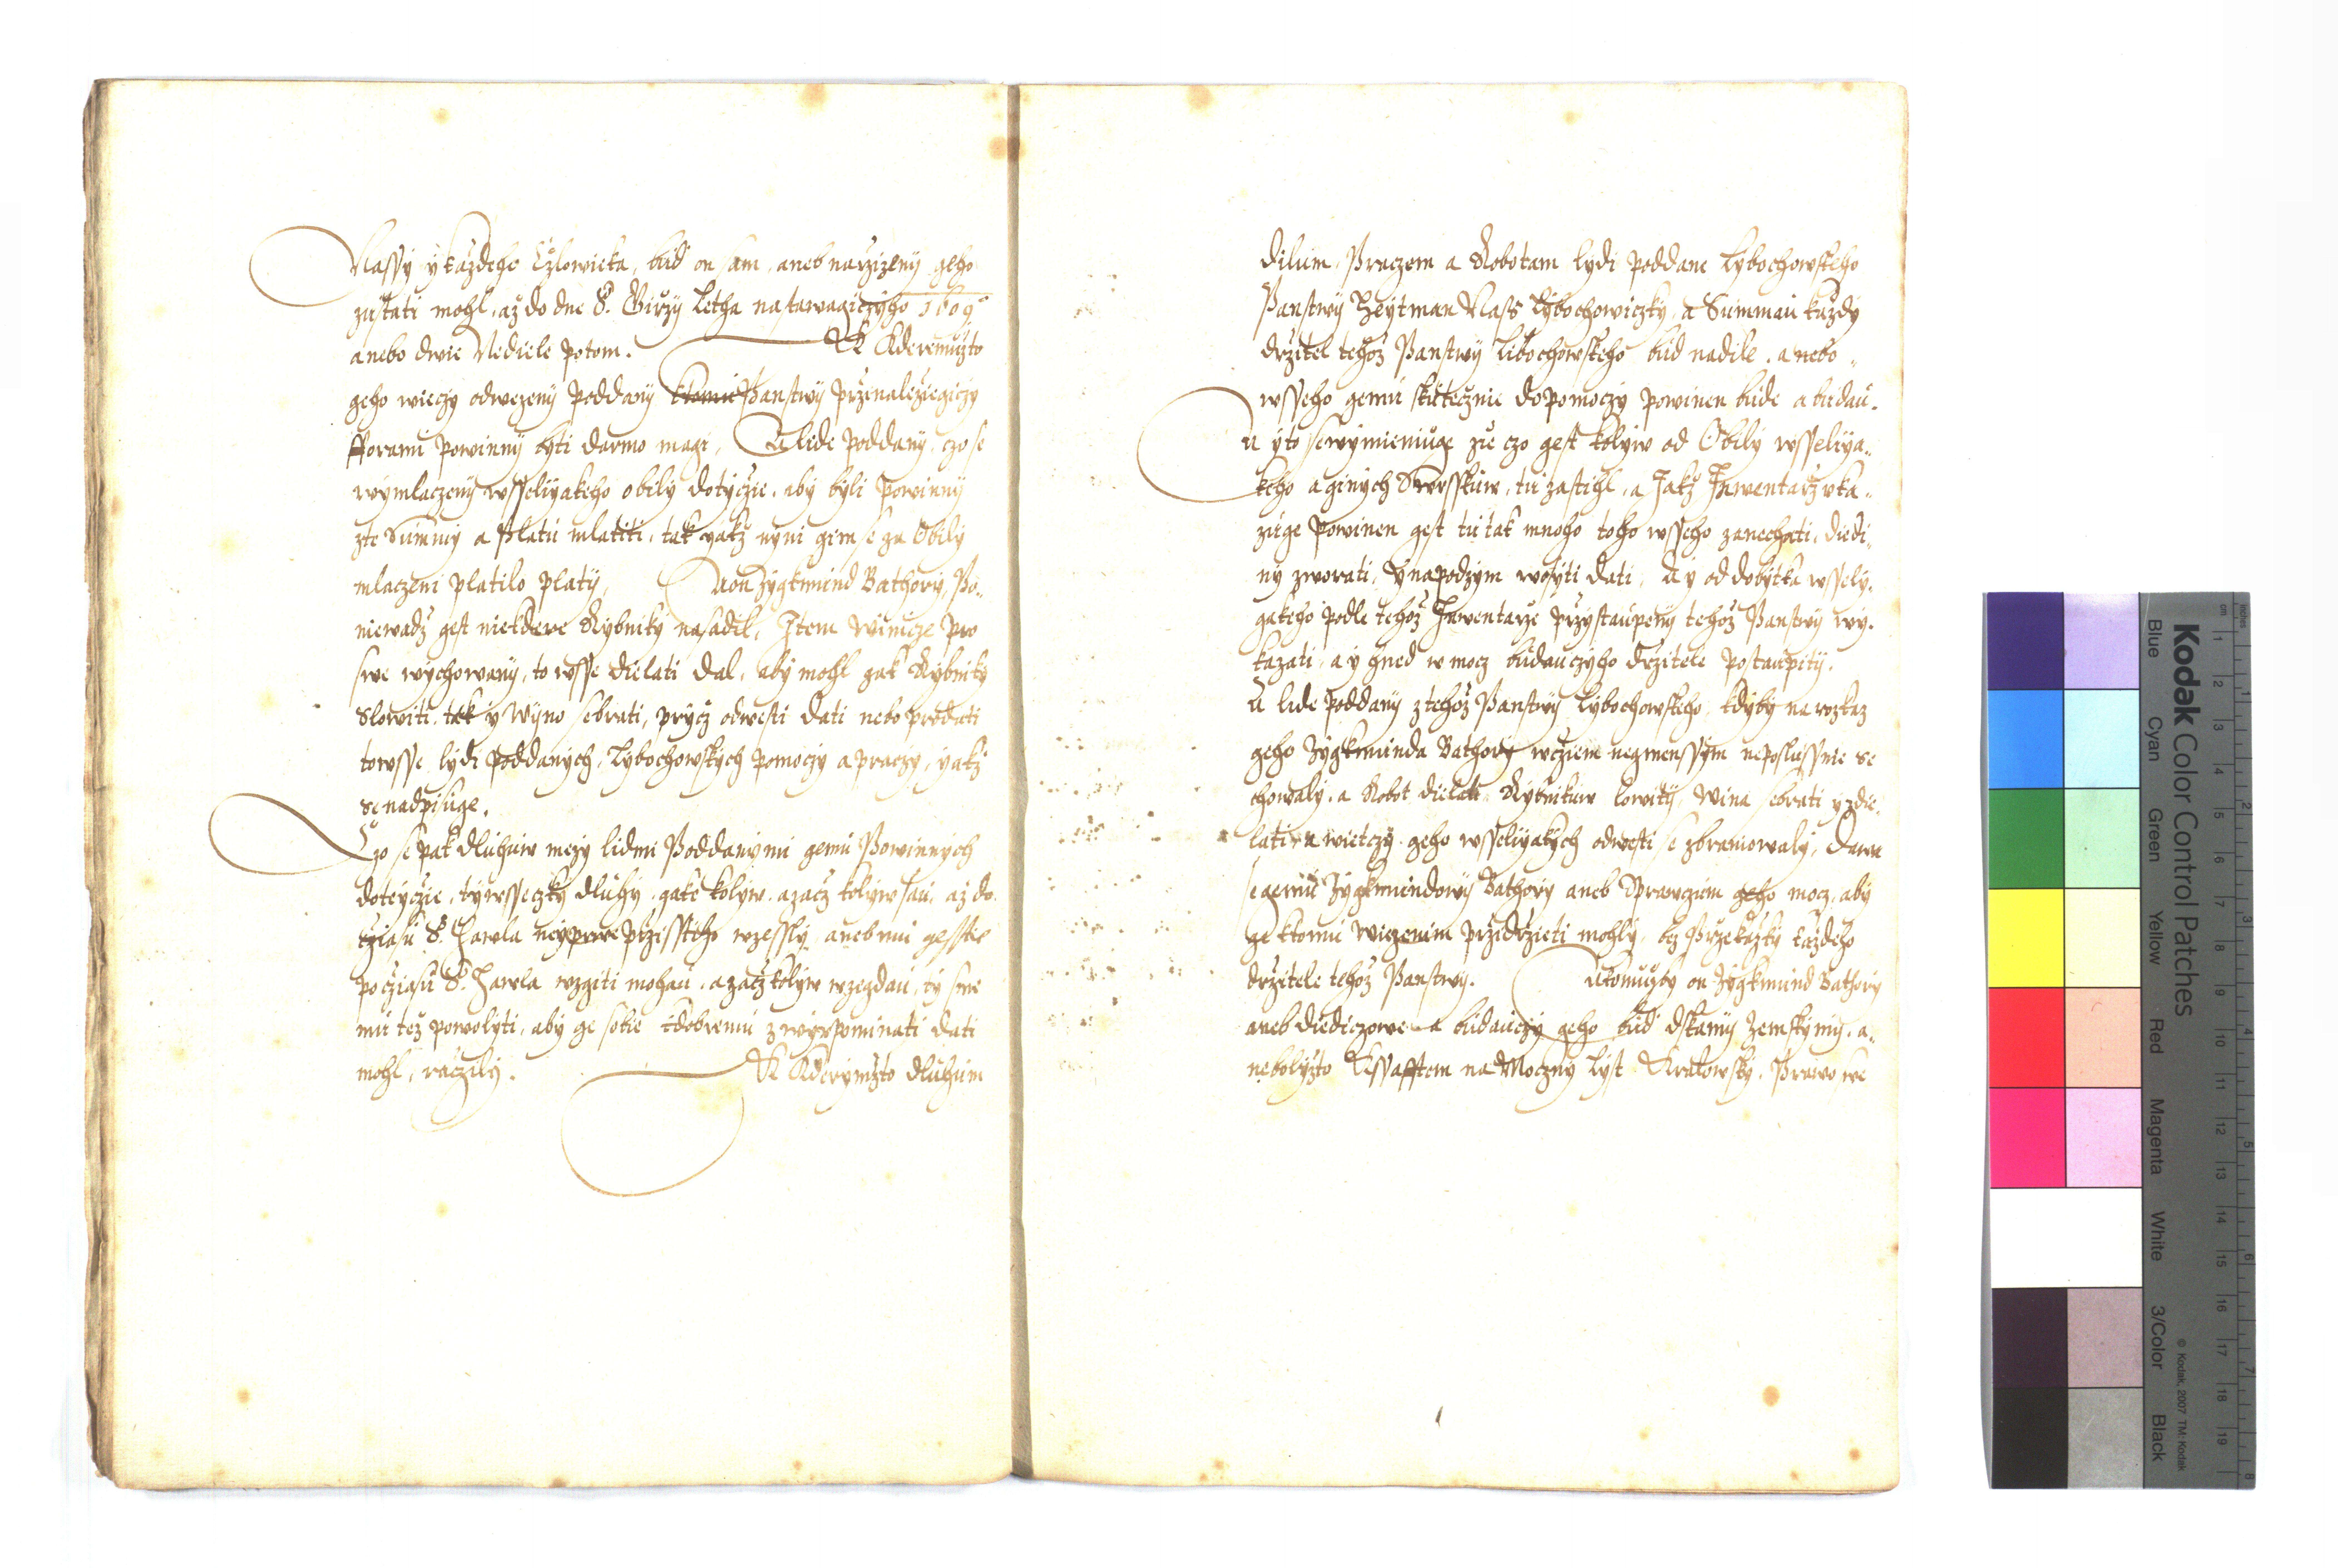 Nassy y každeho Cžlowieka, bud on sam, aneb narzizeny geho
zustati mohl, až do dne S. Girzy Letha nastawagiczyho 1609
anebo dwie Nediele potom. K Kderemužto
geho wieczy odwezeny poddany ktomu Panstwy przinaležiegiczy
fforami powinny byti darmo magi, A lide poddany, czo se
wymlaczeny wsseliyakeho obily dotycžie, aby byli powinny
zte Summy a Platu mlatiti, tak yakž nyni gim se za Obily
mlaczeni platilo platy, A on Zygkmund Bathory, Po-
niewadž gest niekdere Rybniky nasadil, Item Winicze pro
swe wychowany, to wsse dielati dal, aby mohl gak Rybniky
Slowiti, tak y Wyno sebrati, prycž odwesti dati nebo prodati
to wsse lydi poddanych, Lybochowskych pomoczy a praczy, yakž
se nadpisuge.
Czo se pak dluhuw mezy lidmi Poddanymi gemu Powinnych
doteycžie, ty wsseczky dluhy, gake kolyw, a zacž kolyw sau, až do
cžiasu S. Hawla neyprwe przissteho wzessly, aneb mu gesstie
po cžiasu S. Hawla wzgiti mohau, a zacž kolyw wzegdau, ty sme
mu tež powolyti, aby ge sobie k dobremu zwyrpominati dati
mohl, racžily. K Kderymžto dluhum
dilum, Praczem a Robotam lydi poddane Lybochowskeho
Panstwy Heytman Nass Lybochowiczky, a Summau každy
držitel tehož Panstwy Libochowskeho bud nadile, a nebo
wsseho gemu skutecžnie dopomoczy powinen bude a budau.
A y to se wymieniuge zie czo gest kolyw od Obily wsseliya-
keho a ginych Swrsskuw, tu zastihl, a Jakž Inwentarž vka-
zuge powinen gest tu tak mnoho toho wsseho zanechati, diedi-
ny zworati, y na podzym wosyti dati, A y od dobytka wssely-
gakeho podle tehož Inwentarže przystaupeny tehož Panstwy wy-
kazati, a y hned w mocz budauczyho držitele postaupity.
A lide poddany z tehož Panstwy Lybochowskeho, kdyby na rozkaz
geho Zygkmunda Bathory wcžiem neymenssym neposlussnie se
chowaly, a Robot dielati, Rybnikuw lowity, Wina sebrati y zdie-
lati, a wietczy geho wsseliyakych odwesti se zbraniowaly, dawa
se gemu Zygkmundowy Bathory aneb Sprawczum geho mocz, aby
ge ktomu wiezenim przidržieti mohly, bez Przekažky každeho
držitele tehož Panstwy. A tomužby on Zygkmund Bathory
aneb diediczowe a budauczy geho bud dskamy Zemskymy, a-
nebolyžto Kssafftem na Moczny Lyst Kralowsky, Prawo swe